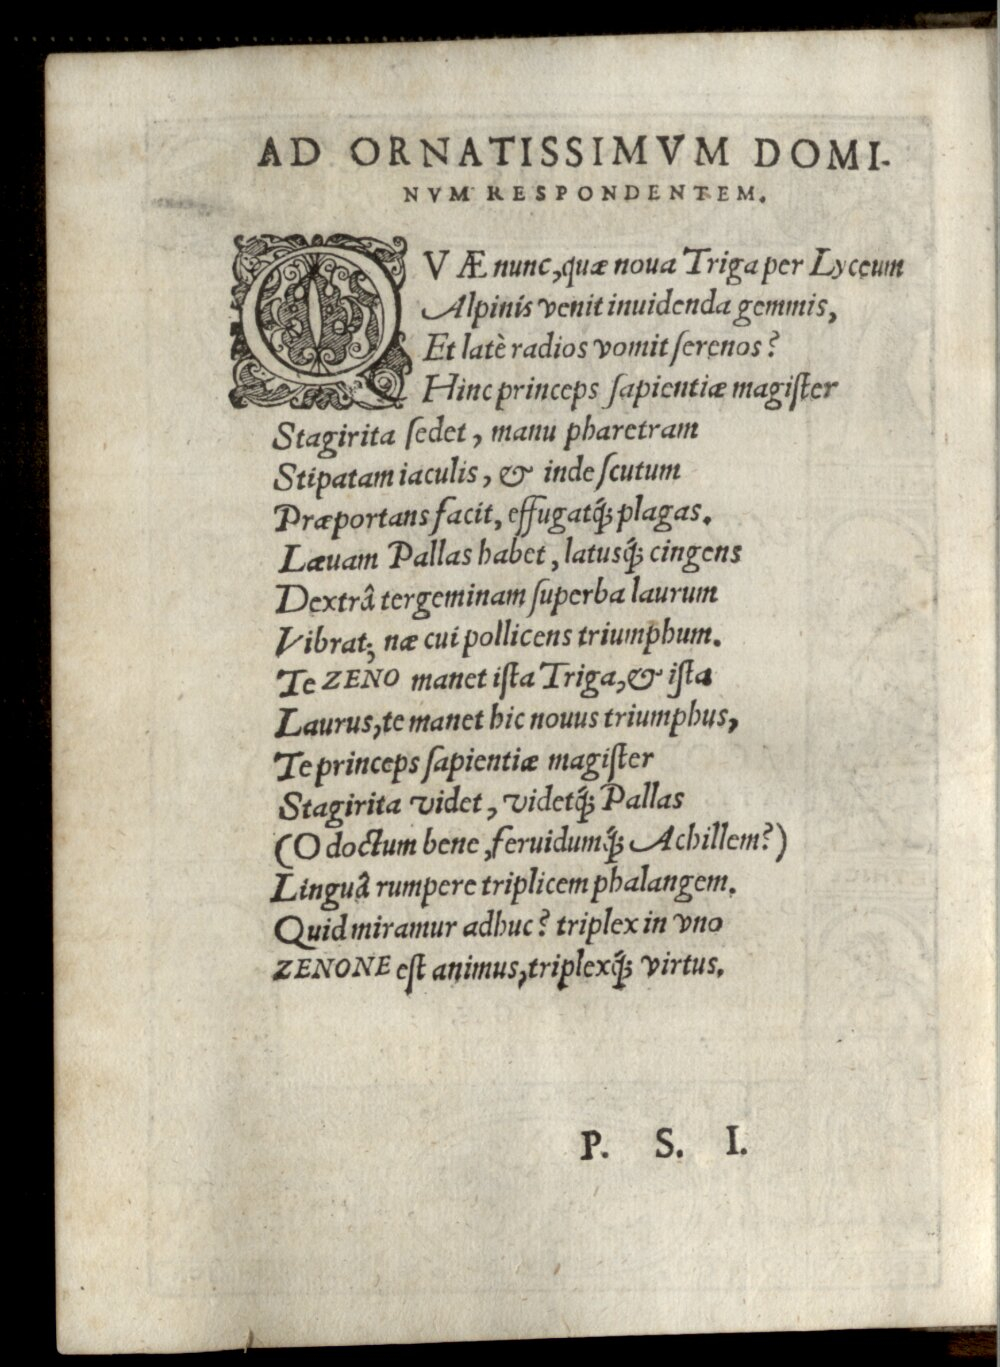 AD ORNATISSIMVM DOMI-
NVM RESPONDENTEM.
QVÆ nunc, quæ noua Triga per Lyceum
Alpinis venit inuidenda gemmis,
Et latè radios vomit serenos?
Hinc princeps sapientiæ magister
Stagirita sedet, manu pharetram
Stipatam iaculis, & inde scutum
Præportans facit, effugatq́; plagas.
Læuam Pallas habet, latusq́; cingens
Dextrâ tergeminam superba laurum
Vibrat; næ cui pollicens triumphum.
Te ZENO manet ista Triga, & ista
Laurus, te manet hic nouus triumphus,
Te princeps sapientiæ magister
Stagirita videt, videtq́; Pallas
(O doctum bene, feruidumq́; Achillem?)
Linguâ rumpere triplicem phalangem.
Quid miramur adhuc? triplex in vno
ZENONE est animus, triplexq́; virtus.
P. S. I.